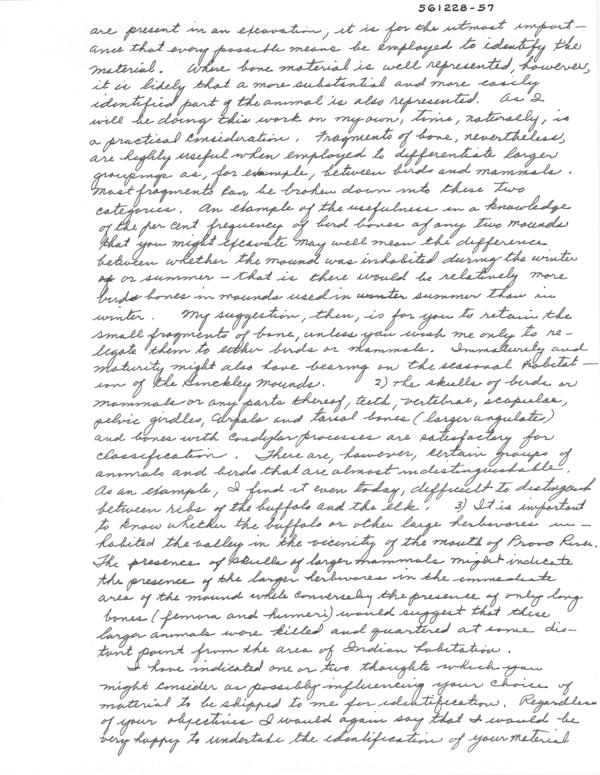 561228-57
are present in an excavation, it is for the utmost import-
ance that every possible means be employed to identify the
material. Where bone material is well represented, however,
it is likely that a more substantial and more easily
identified part of the animal is also represented. As I
will be doing this work on my own, time, naturally, is
a practical consideration. Fragments of bone, nevertheless,
are highly useful when employed to differentiate larger
groupings as, for example, between birds and mammals.
Most fragments can be broken down into these two
categories. An example of the usefulness in a knowledge
of the per cent frequency of bird bones of any two mounds
that you might excavate may well mean the difference
between whether the mound was inhabited during the winter
or summer - that is there would be relatively more
birds bones in mounds used in winter summer than in
winter. My suggestion, then, is for you to retain the
small fragments of bone, unless you wish me only to re-
legate them to either birds or mammals. Immaturely and
maturity might also have bearing on the seasonal habitat-
ion of the Hinckley mounds. 2) The skulls of birds or
mammals or any parts thereof, teeth, vertebrae, scapulae,
pelvic girdles, carpals and tarsal bones (larger ungulates)
and bones with condylar processes are satisfactory for
classification. There are, however, certain groups of
animals and birds that are almost indistinguishable.
As an example, I find it even today, difficult to distinguish
between ribs of the buffalo and the elk. 3) It is important
to know whether the buffalo or other large herbivores in-
habited the valley in the vicinity of the mouth of Provo River.
The presence of skulls of larger mammals might indicate
the presence of the larger herbivores in the immediate
area of the mound while conversely the presence of only long
bones (femora and humeri) would suggest that these
larger animals were killed and quartered at some dis-
tant point from the area of Indian habitation.
I have indicated one or two thoughts which you
might consider as possibly influencing your choice of
material to be shipped to me for identification. Regardless
of your objectives I would again say that I would be
very happy to undertake the identification of your material